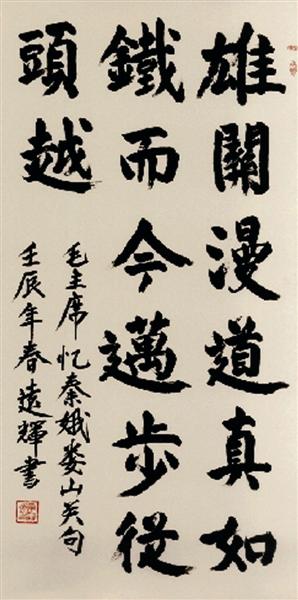 雄關漫道真如
鐵而今邁步從
頭越
毛主席忆秦娥娄山关句
壬辰年春遠輝書